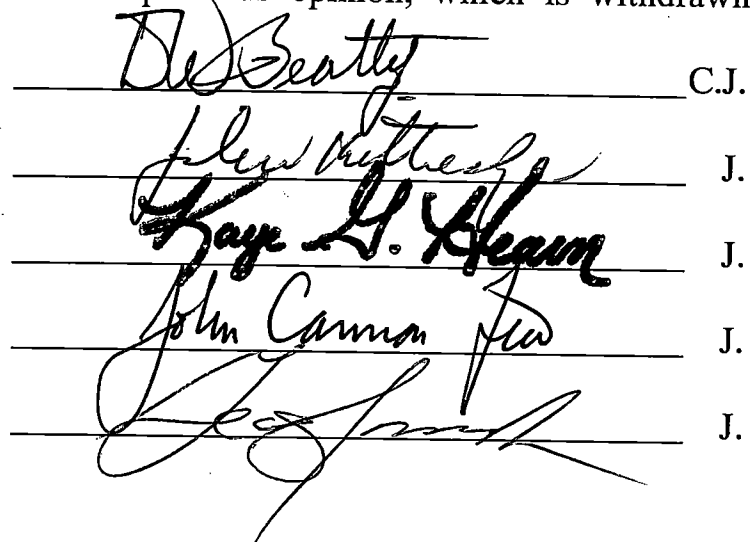 opinion, which is withdrawn
DW Beatty C.J.
J.
Kaye G. Hearn J.
John Cannon Few J.
J.